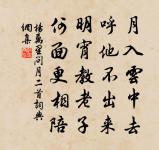 月入雲中去
呼他不出來
明宵教老子
何面更相陪
楊萬里問月二首詞典
網集